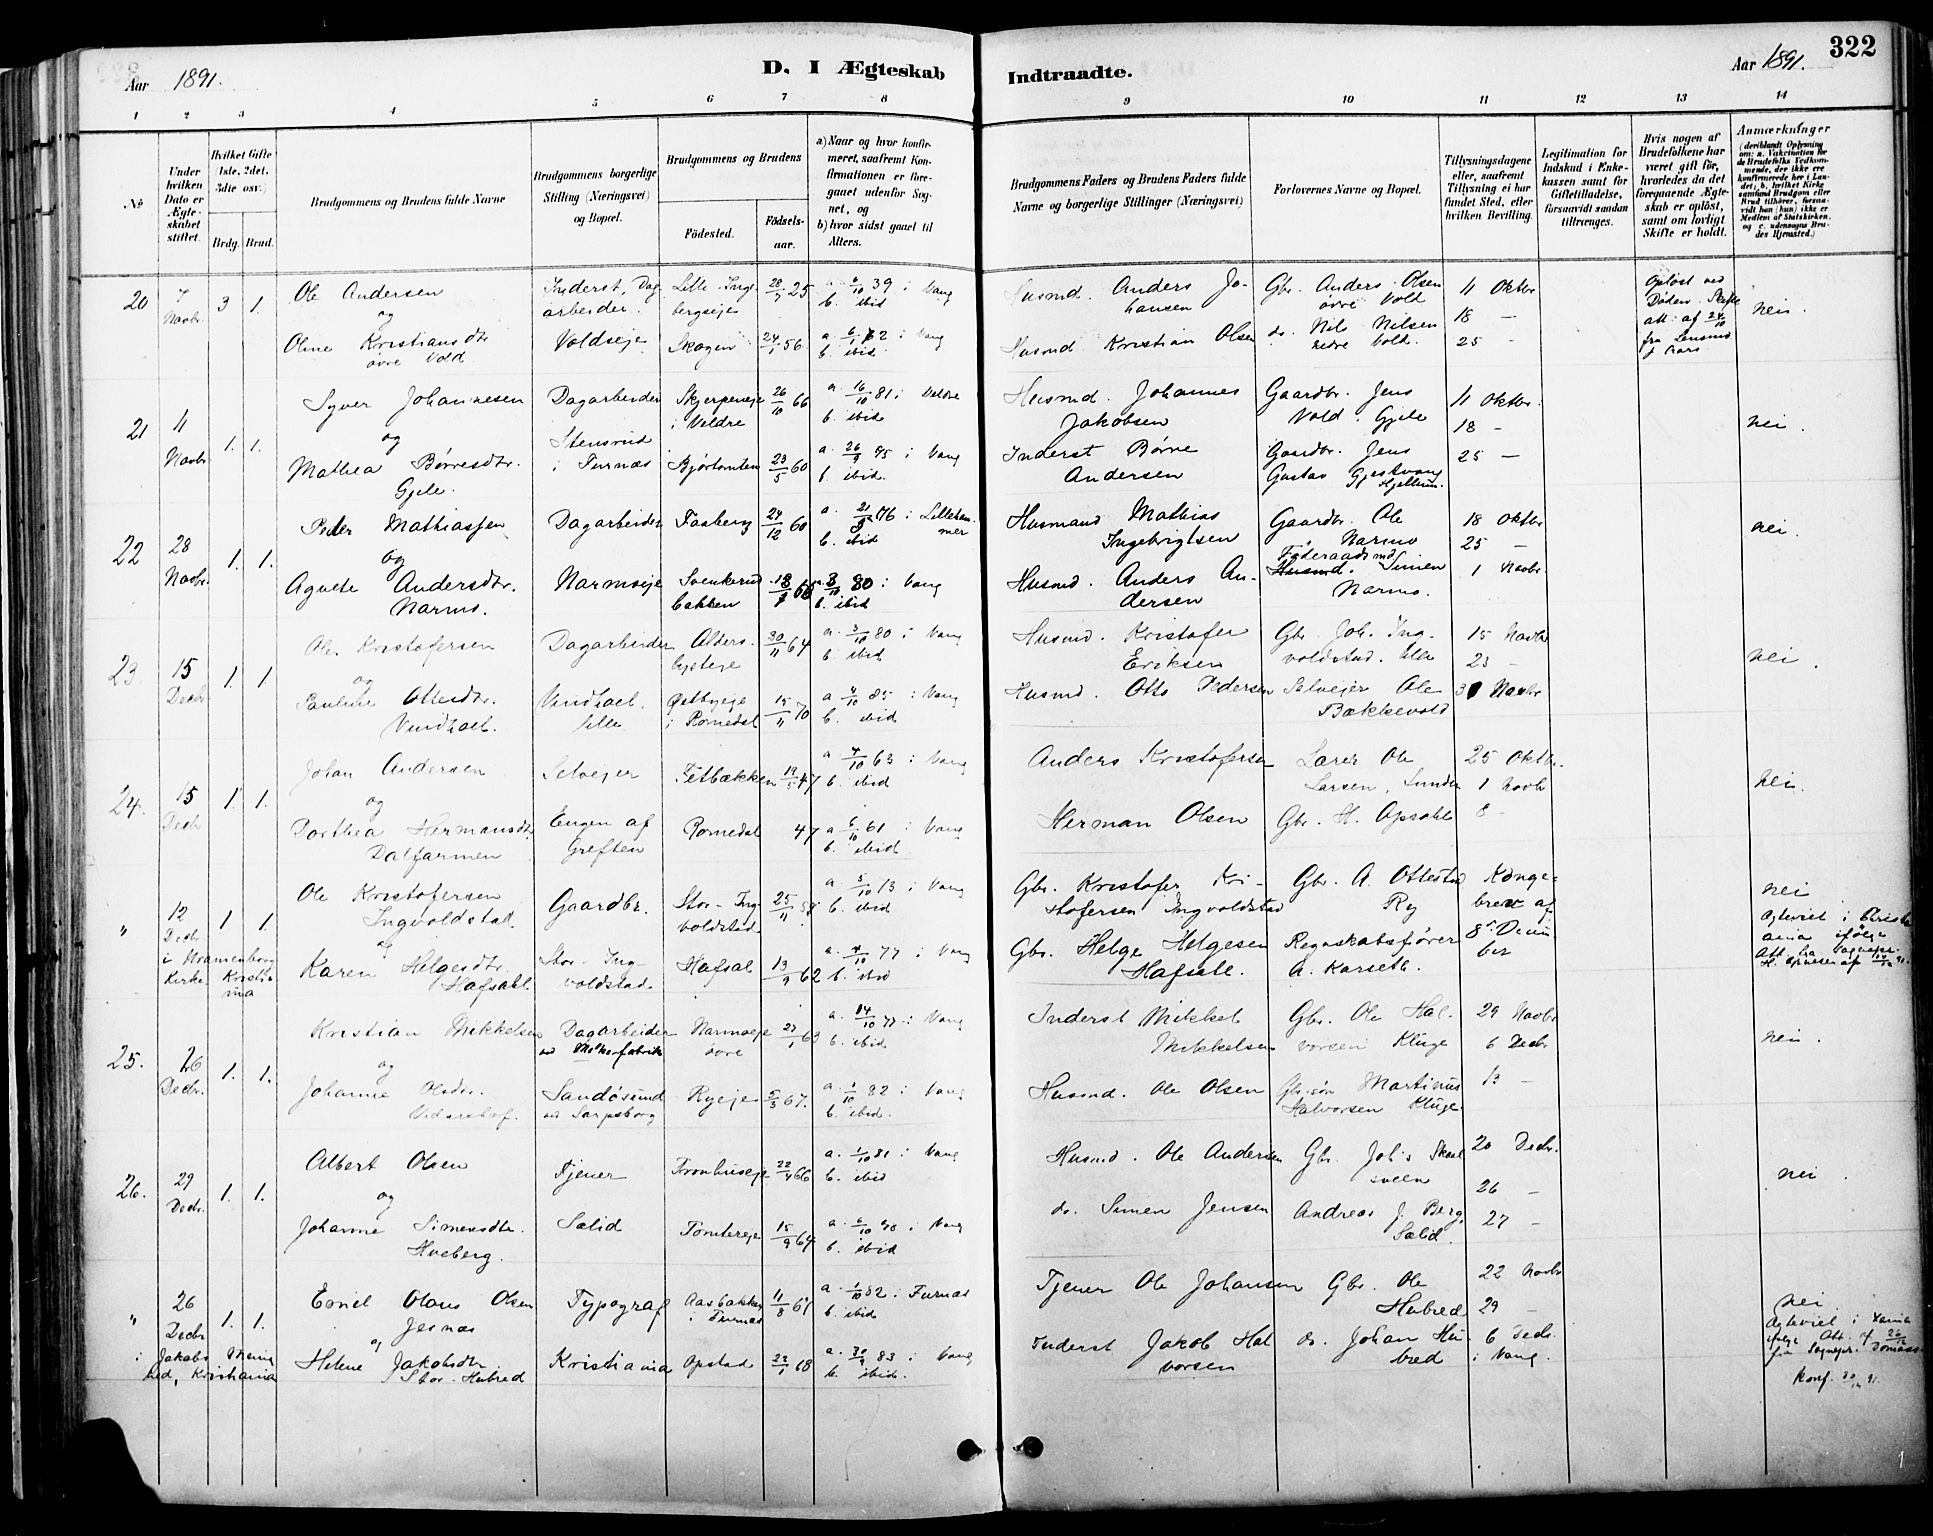 Aar 1891.
D. I Ægteskab
Indtraadte.
Aar 1891.
322
1 2 3 4 5 6 7 8 9 10 11 12 13 14
No
Under hvilken Dato er Ægteskabet stiftet.
Hvilket Gifte (1ste, 2det, 3die osv.)
Brdg. Brud.
Brudgommens og Brudens fulde Navne
Brudgommens borgerlige Stilling (Næringsvei) og Bopæl.
Brudgommens og Brudens
Fødested.
Fødselsaar.
a) Naar og hvor konfirmeret, saafremt Konfirmationen er foregaaet udenfor Sognet, og
b) hvor sidst gaaet til Alters.
Brudgommens Faders og Brudens Faders fulde Navne og borgerlige Stillinger (Næringsvei)
Forlovernes Navne og Bopæl.
Tillysningsdagene eller, saafremt Tillysning ei har fundet Sted, efter hvilken Bevilling.
Legitimation for Indskud i Enkekassen samt for Giftetilladelse, forsaavidt saadan tiltrænges.
Hvis nogen af Brudefolkene har været gift før, hvorledes da det foregaaende Ægteskab er opløst, samt om lovligt Skifte er holdt.
Anmærkninger (deriblandt Oplysning om: a. Vakcination for de Brudefolks Vedkommende, der ikke ere konfirmerede her i Landet; b. hvilket Kirkesamfund Brudgom eller Brud tilhører, forsaavidt han (hun) ikke er Medlem af Statskirken, og c. udensogns Brudes Hjemsted.)
20 7 Novbr 3 1.
Ole Andersen
og
Oline Kristiansdtr
øvre Vold
Inderst, Dagarbeider.
Voldseje
Lille-Ingebergseje 28/7 25
Skogen 24/1 56
a. 6/10 39 i Vang
b. ibid
b. ibid
Husmd. Anders Johansen
Husmd Kristian Olsen
Gbr. Anders Olsen
øvre Vold
do. Nils Nilsen
nedre Vold.
11 Oktbr
18 –
25 –
Opløst ved
Døden. Skifte
att. af 24/10
fra Lensmd
nei.
21 11 Novbr 1. 1.
Syver Johannesen
og
Mathea Børresdtr.
Gjele.
Dagarbeider
Stensrud
i Furnæs
Skjerpeneje
i Veldre 26/10 66
Bjørtomten 23/5 60
a. 16/10 81 i Veldre
b. ibid
a. 26/9 75 i Vang
b. ibid.
Husmd. Johannes
Jakobsen
Inderst Børre
Andersen
Gaardbr. Jens
Vold. Gjele
Gaardbr. Jens
Gustav Gjestvang
Hjellum.
11 Oktbr.
18 –
25 –
nei.
22 28 Novbr. 1. 1.
Peder Mathiassen
og
Agnete Andersdtr.
Narmo.
Dagarbeider
Narmoeje
Faaberg 24/12 60
Svenkerud
bakken
a. 76 i Lillehammer
b. ibid
80 i Vang
b. ibid
Husmand Mathias
Ingebrigtsen
Husmd. Anders Andersen
Gaardbr. Ole
Narmo
Føderaadsmd
Husmd. Simen
Narmo.
18 Oktbr
25 –
1 Novbr
nei.
23. 15 Decbr 1. 1
Ole Kristofersen
og
Pauline Ottesdtr.
Vindhael.
Dagarbeider
Vindhael.
lille
30/11 64
Østbyeje
i Romedal 15/11 70
a. 3/10 80 i Vang
b. ibid
a 4/10 85 i Vang
b. ibid
Husmd. Kristofer
Eriksen
Husmd. Otto Pedersen
Gbr. Joh. Ingvoldstad. lille
Selveier Ole
Bækkevold
15 Novbr
23 –
30 Novbr
nei.
24. 15 Decbr 1. 1.
Johan Andersen
og
Dorthea Hermansdtr.
Dalfarmen
Selveier
Engen af
Greften
Fetbækken 19/5 47
Romedal 47
a. 4/10 63 i Vang
b. ibid
a 6/10 61 i Vang
b. ibid
Anders Kristofersen
Herman Olsen
Lærer Ole
Larsen, Sunde
Gbr. H. Opsahl
25 Oktbr.
1 Novbr
8 –
nei.
" 12 Decbr 1 1.
i Uranienborg
Kirke Kristiania
Ole Kristofersen
Ingvoldstad.
og
Karen Helgesdtr.
Hafsahl
Gaardbr.
Stor-Ingvoldstad.
Stor-Ingvoldstad 25/11
Hafsal 13/9 62
a. 5/10 73 i Vang
b. ibid
a. 4/10 77 i Vang
b. ibid
Gbr. Kristofer Kristofersen Ingvoldstad
Gbr. Helge Helgesen
Hafsahl.
Gbr. A. Ottestad
Ry
Regnskabsfører
A. Karseth.
Kongebrev af
8de December
nei
Ægteviet i Christiania ifølge
Att. fra Sognepr.
25. 26 Decbr. 1. 1.
Kristian Mikkelsen
og
Johanne Olsdtr.
Vidarshof.
Dagarbeider
ved Melkefabrik
Sandøsund
ved Sarpsborg
Narmoeje
øvre 27/1 63
Ryeje 5/3 67.
a. 14/10 77 i Vang
b. ibid.
a. 1/10 82 i Vang
b. ibid.
Inderst Mikkel
Mikkelsen
Husmd. Ole Olsen
Gbr. Ole Halvorsen Kluge
Gbr.søn Martinus
Halvorsen Kluge.
29 Novbr
6 Decbr
13 –
nei.
26. 29 Decbr. 1. 1.
Albert Olsen
og
Johanne Simensdtr.
Hveberg.
Tjener
Salid
Fronhuseje 22/4 66
Tomtereje 15/9 64
a. 1/10 81 i Vang
b. ibid
a. 6/10 78 i Vang
b. ibid
Husmd. Ole Andersen
do. Simen Jensen
Gbr. Joh's Skaalsveen
Andreas J. Berg,
Salid.
20 Decbr.
26 –
27 –
nei.
" 26 Decbr 1. 1.
i Jakobs Menighed, Kristiania
Emil Olaus Olsen
Jesnæs
og
Helene Jakobsdtr
Stor-Hubred
Typograf
Kristiania
Aasbakken
i Furnæs 11/8 67
Opstad 68
a. 1/10 82 i Furnæs
b. ibid
a. 30/9 83 i Vang
b. ibid.
Tjener Ole Johansen
Inderst Jakob Halvorsen
Gbr. Ole
Hubred
do. Johan Hubred
22 Novbr
29 –
6 Decbr.
i Vang.
nei.
Ægteviet i Xania
ifølge Att. af 26/12
fra Sognepr.
Konf. 30/12 91.
1